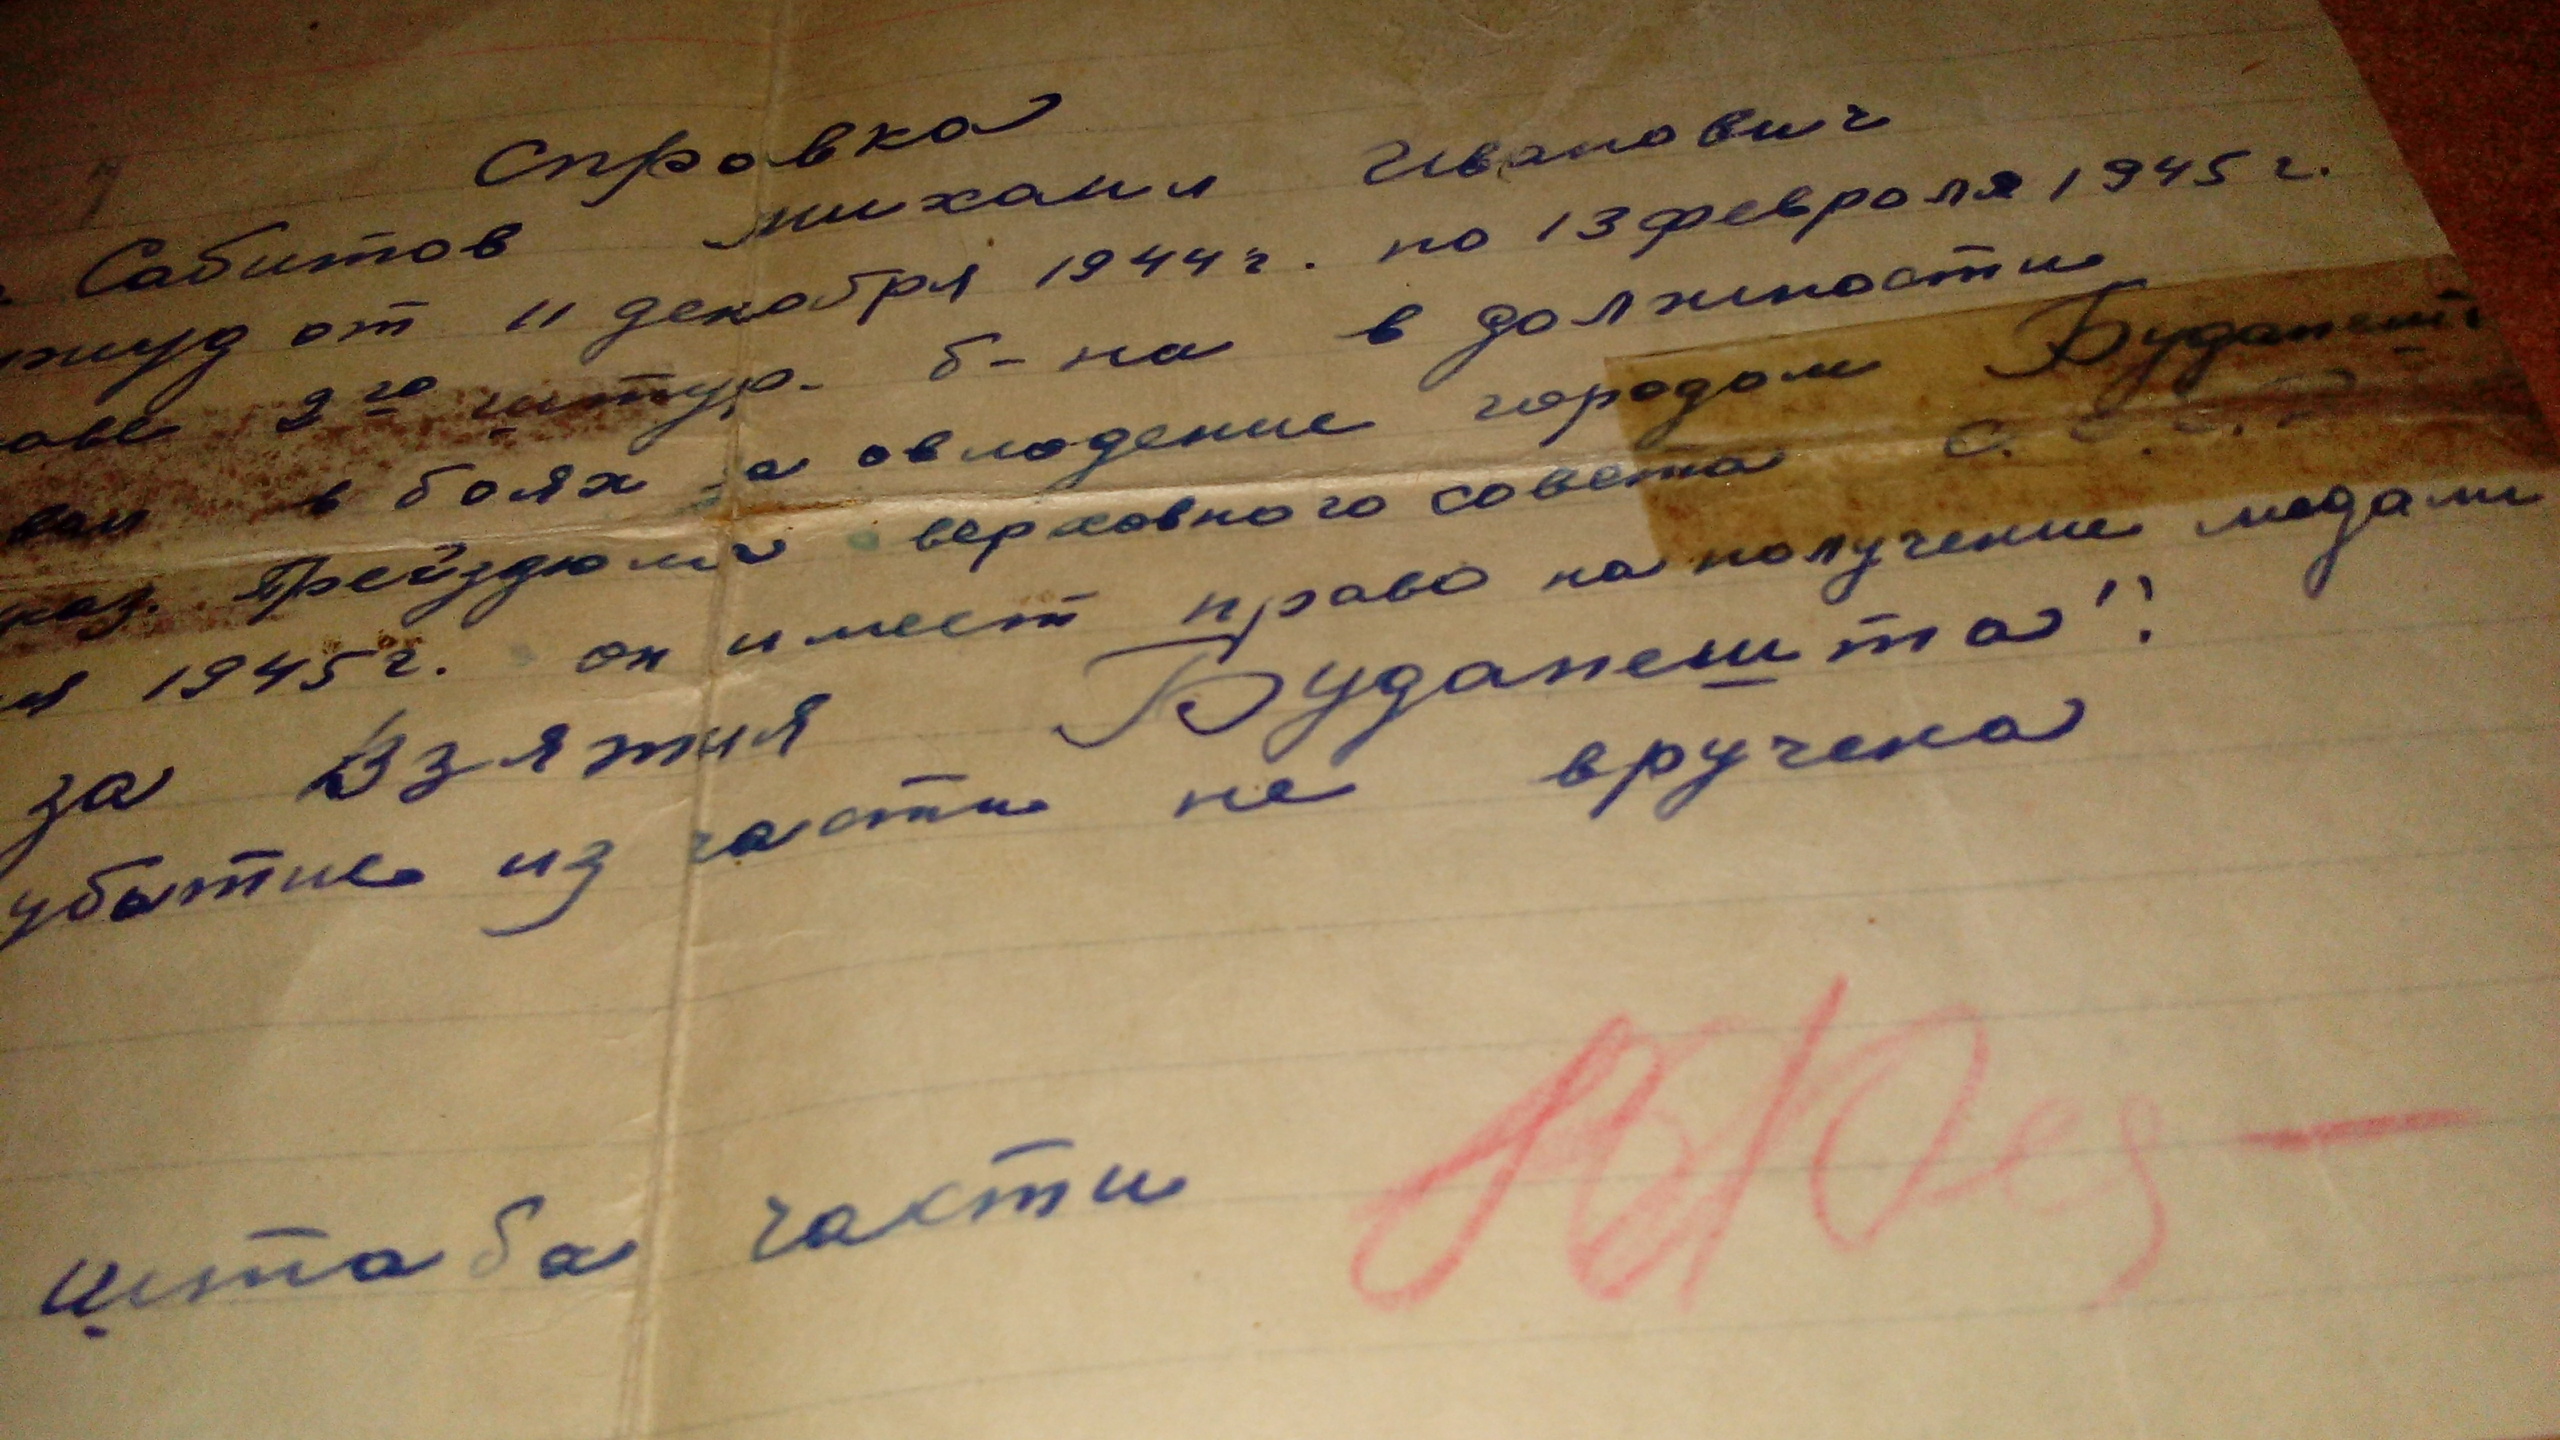 Справка
Сабитов михаил Иванович
от 11 декабря 1944 г. по 13 февраля 1945 г.
2го штур. б-на в должности
в боях за овладение городом Будапешт
Прейздюми верховного совета С.С.С.Р
1945 г. он имеет право на получение медали
за Взятия Будапешта"
убытие из части не вручена
штаба части